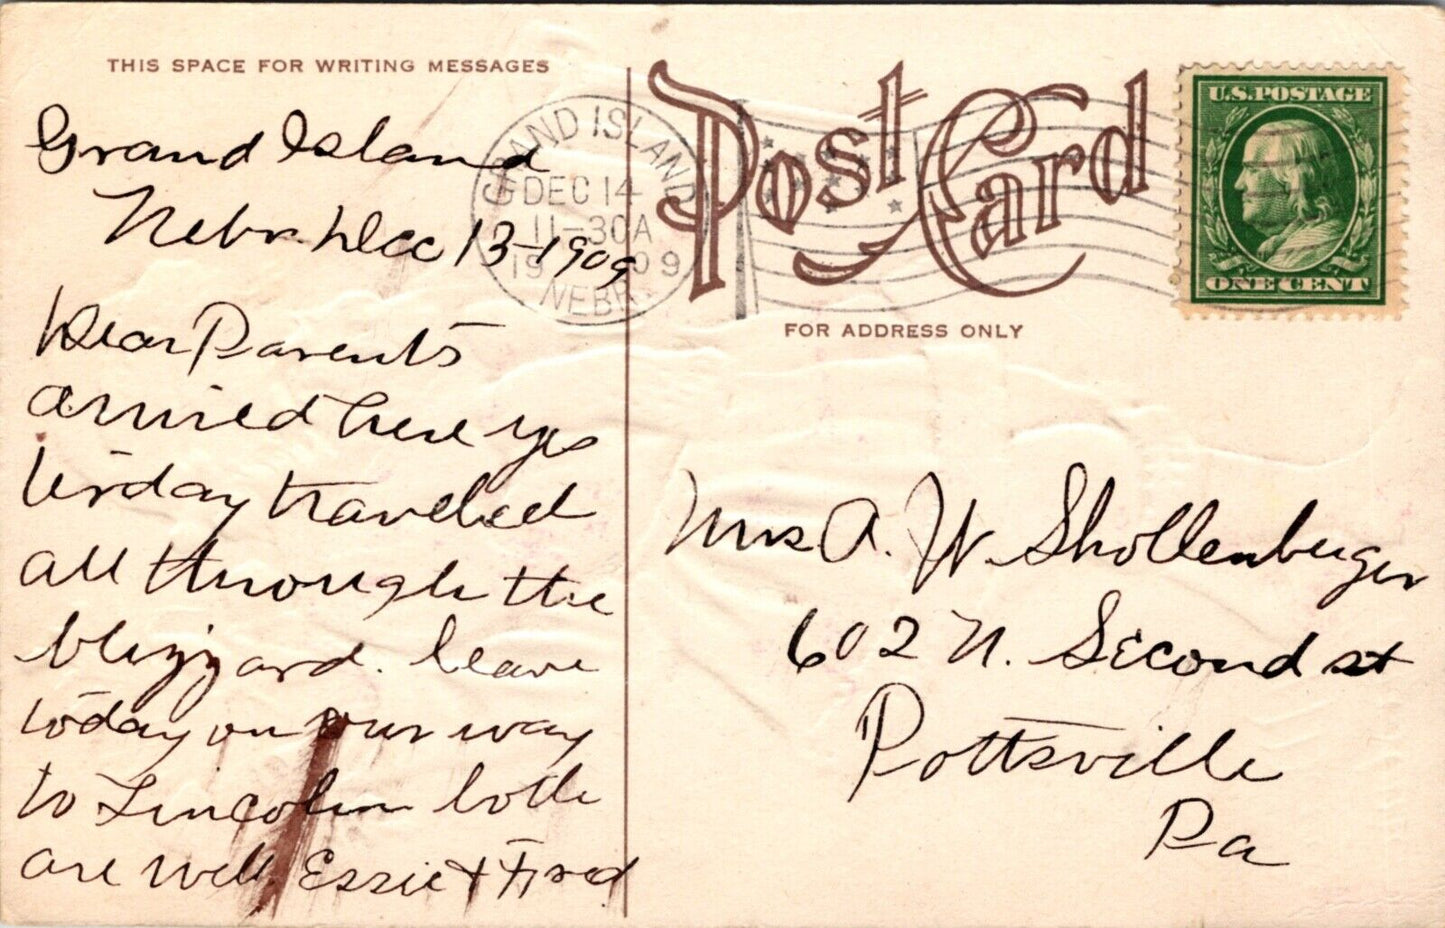 THIS SPACE FOR WRITING MESSAGES
Post Card
FOR ADDRESS ONLY
U.S. POSTAGE
ONE CENT
GRAND ISLAND
DEC 14
11-30A
1909
NEBR.
Grand Island
Nebr. Dec 13-1909
Dear Parents
arrived here yes
terday traveled
all through the
blizzard. leave
today on our way
to Lincoln both
are well. Essie & Fred
Mrs A. W. Shollenberger
602 N. Second st
Pottsville
Pa